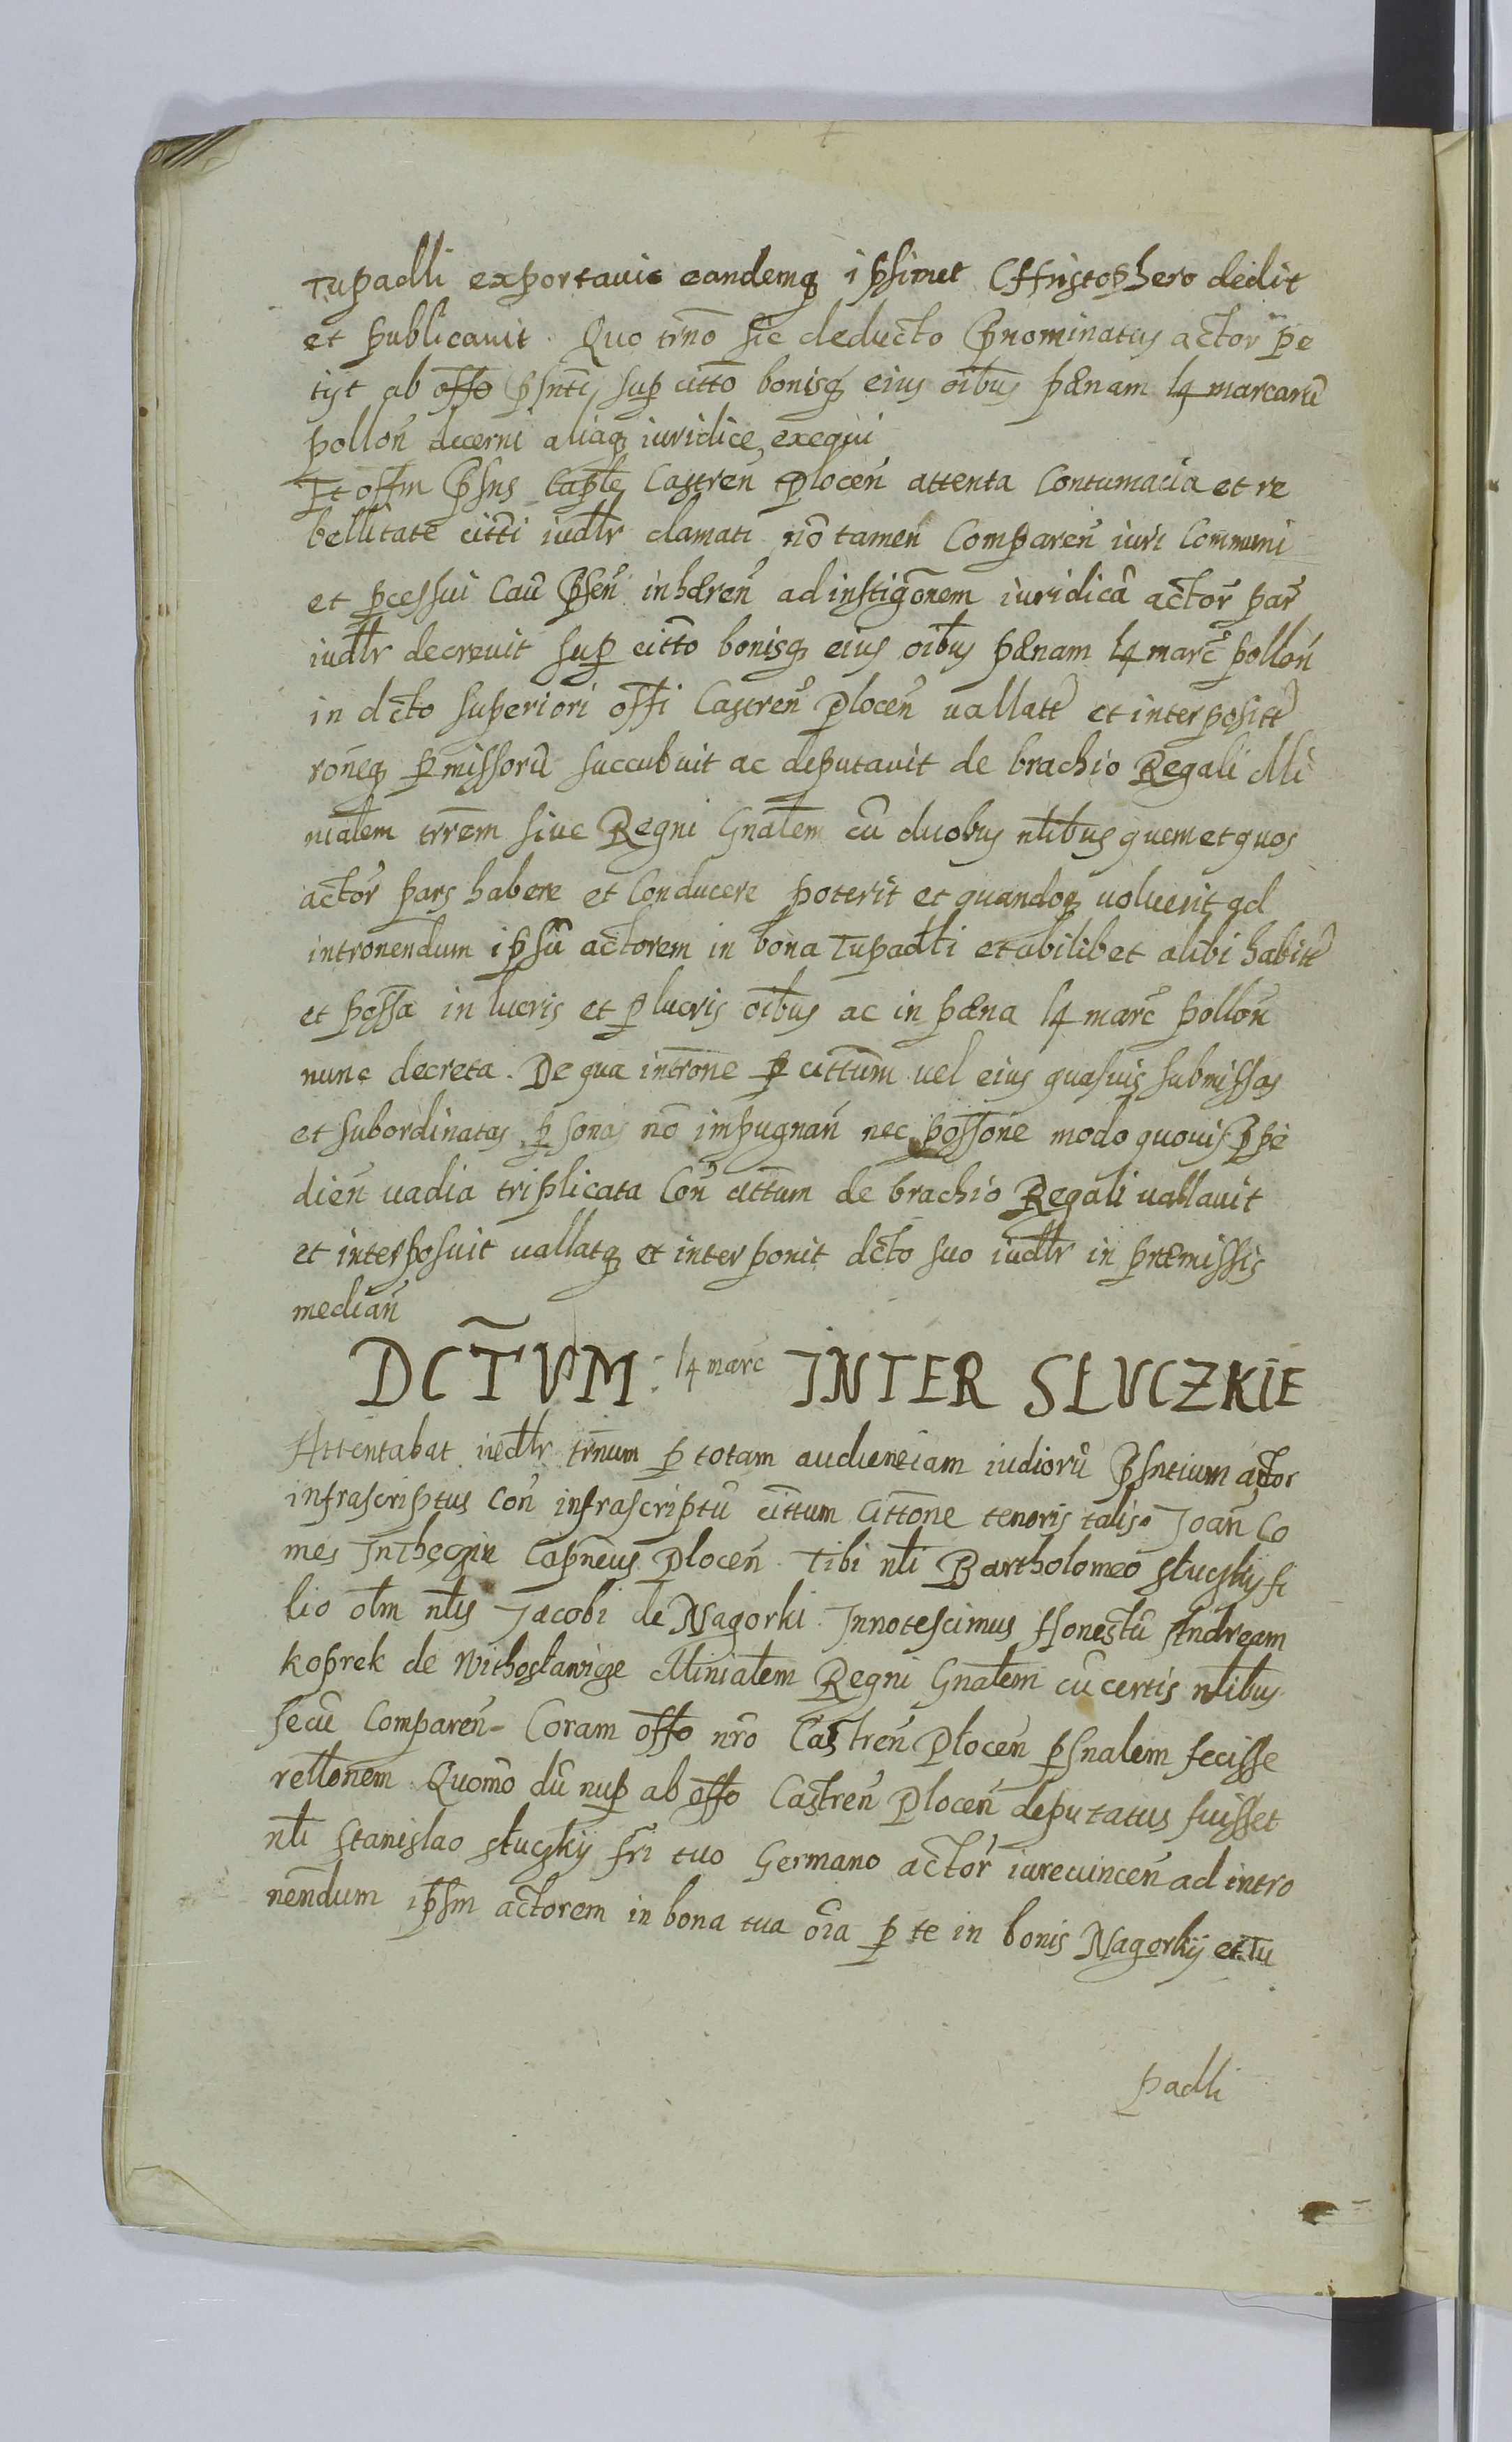 Tupadli exportavit eandemq ipsimet Christophero dedit
et publicavit. Quo trno sic deducto Pnominatus actor pe
tyt ab offo psnti sup citto bonisq eius oibus pænam 14 marcarū
pollon decerni aliaq iuridice exequi
Et offm psns Caple Castren Plocen attenta Contumacia et re
bellitate citti iudlr clamati nō tamen Comparen iuri Communi
et pcessui Cau Psen inhæren ad instigonem iuridicā actor par
iudlr decrevit sup citto bonisq eius oibus pænam 14 marc pollon
in dcto superiori offi Castren Plocen vallatt et interpositt
roneq pmissorū succubuit ac deputavit de brachio Regali Mi
nialem trrem sive Regni Gnalem cū duobus nlibus quem et quos
actor pars habere et Conducere poterit et quandoq voluerit ad
intronendum ipsū actorem in bona Tupadli et ubilibet alibi habitt
et possa in lucris et plucris oibus ac in pæna 14 marc pollon
nunc decreta. De qua introne p cittum vel eius quasvis submissas
et subordinatas psonas nō impugnan nec possone modo quovis Ppe
dien vadia triplicata Con cittum de brachio Regali vallavit
et interposuit vallatq et interponit dcto suo iudlr in præmissis
median
DCTUM: 14 marc INTER SŁUCZKIE
Attentabat iudlr trnum p totam audientiam iudiorū Psntium actor
infrascriptus Con infrascriptū cittum Cittone tenoris talis. Joan Co
mes In Thęczin Capneus Plocen. Tibi nli Bartholomeo Słuczky fi
lio olm nlis Jacobi de Nagorki. Innotescimus Honestū Andream
koprek de Withosławicze Minialem Regni Gnalem cū certis nlibus
secū Comparen Coram offo nro Castren Plocen psnalem fecisse
rellonem. Quomo dū nup ab offo Castren Plocen deputatus fuisset
nli Stanislao Słuczkij fri tuo Germano actor iurevincen ad intro
nendum ipsm actorem in bona tua oia p te in bonis Nagorkij et Tu
padli